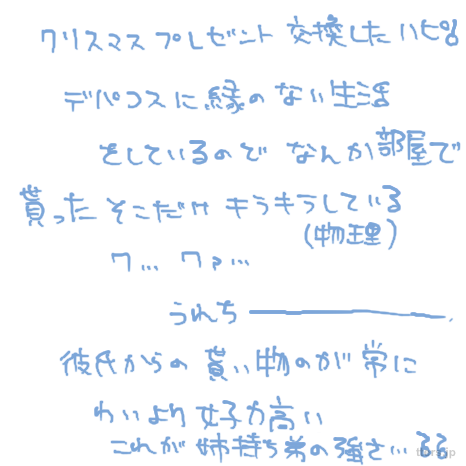 クリスマスプレゼント交換したハピ
デパコスに縁のない生活
をしているので なんか部屋で
貰った そこだけ キラキラしている
(物理)
ワ… ワァ…
うれち ────
彼氏からの貰い物のが常に
わいより女子力高い
これが姉持ち弟の強さ…